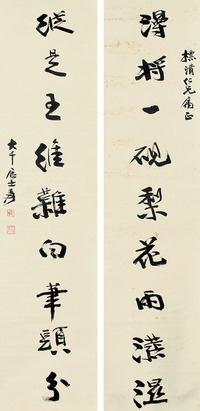 標清仁兄屬正
得將一硯梨花雨潑濕
縱是王維難向筆頭分
大千居士爰